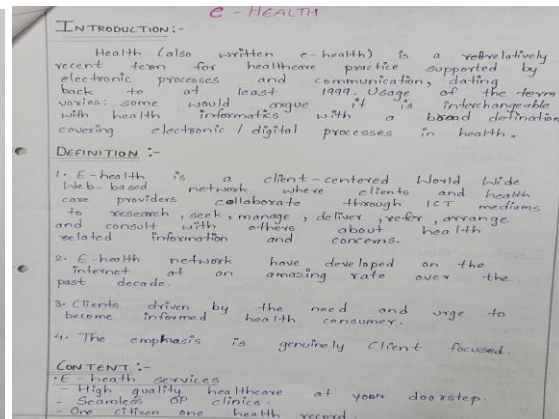 e - HEALTH
INTRODUCTION :-
Health (also written e-health) is a relatively
recent term for healthcare practice supported by
electronic processes and communication, dating
back to at least 1999. Usage of the term
varies: some would argue it is interchangeable
with health informatics with a broad defination
covering electronic / digital processes in health.
DEFINITION :-
1. E-health is a client-centered World Wide
Web-based network where clients and health
care providers collaborate through ICT mediums
to research, seek, manage, deliver, refer, arrange
and consult with others about health
related information and concerns.
2. E-health network have developed on the
internet at an amazing rate over the
past decade.
3. Clients driven by the need and urge to
become informed health consumer.
4. The emphasis is genuinely Client focused.
CONTENT :-
• E-heath services
- High quality healthcare at your doorstep.
- Seamless OP clinics.
- One citizen one health record.